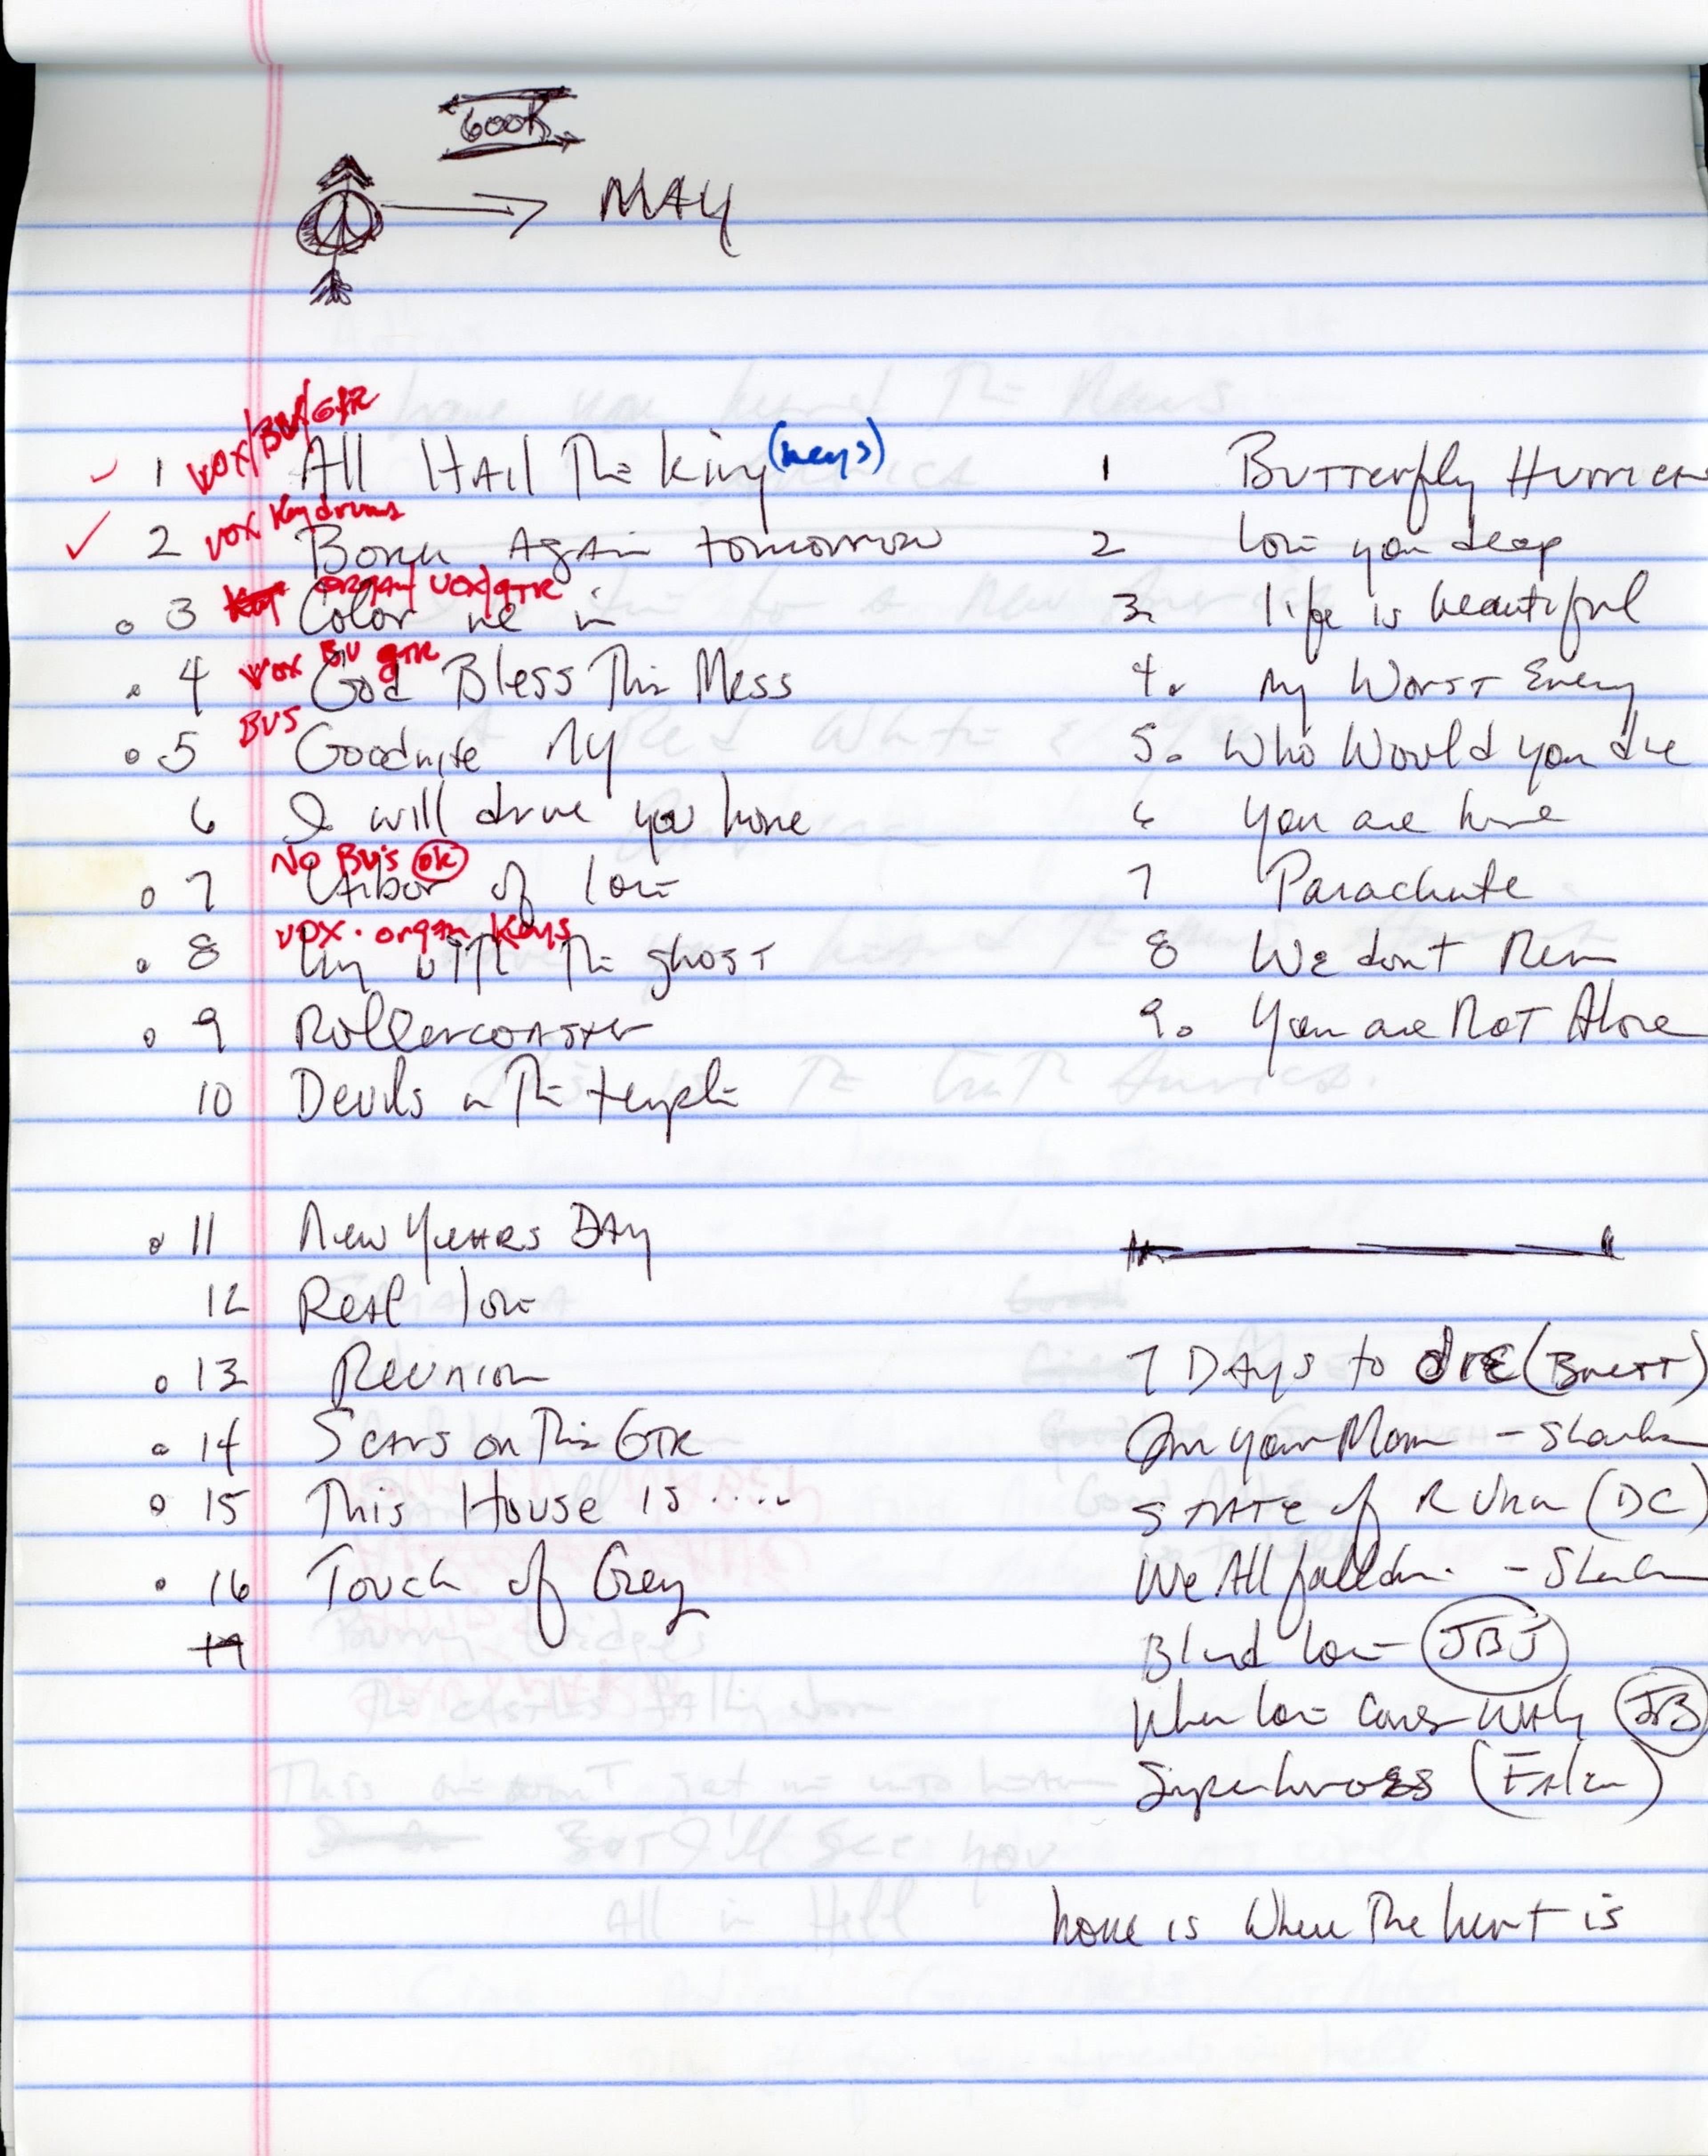 600K
MAY
VOX/BV/GTR
1 All Hail The King (keys) 1 Butterfly Hurrican
VOX Key drums
2 Born Again tomorrow 2 love you deep
organ/VOX/GTR
3 Color me in 3. life is beautiful
VOX BV GTR
4 God Bless This Mess 4. My Worst Enemy
BVS
5 Goodnite NY 5. Who Would you die
6 I will drive you home 6 you are here
No BV's ok
7 Labor of love 7 Parachute
VOX . organ Keys
8 Livin with The ghost 8 We dont Run
9 Rollercoaster 9. You are Not Alone
10 Devils in The temple
11 New Years Day
12 Real love
13 Reunion 7 Days to die (Brett)
14 Scars on This GTR your Mom - Shanks
15 This House is .... State of (DC)
16 Touch of Grey We All fall down. - Shanks
Blind love JBJ
When love comes JB
Superheroes (Falcon)
home is Where The heart is